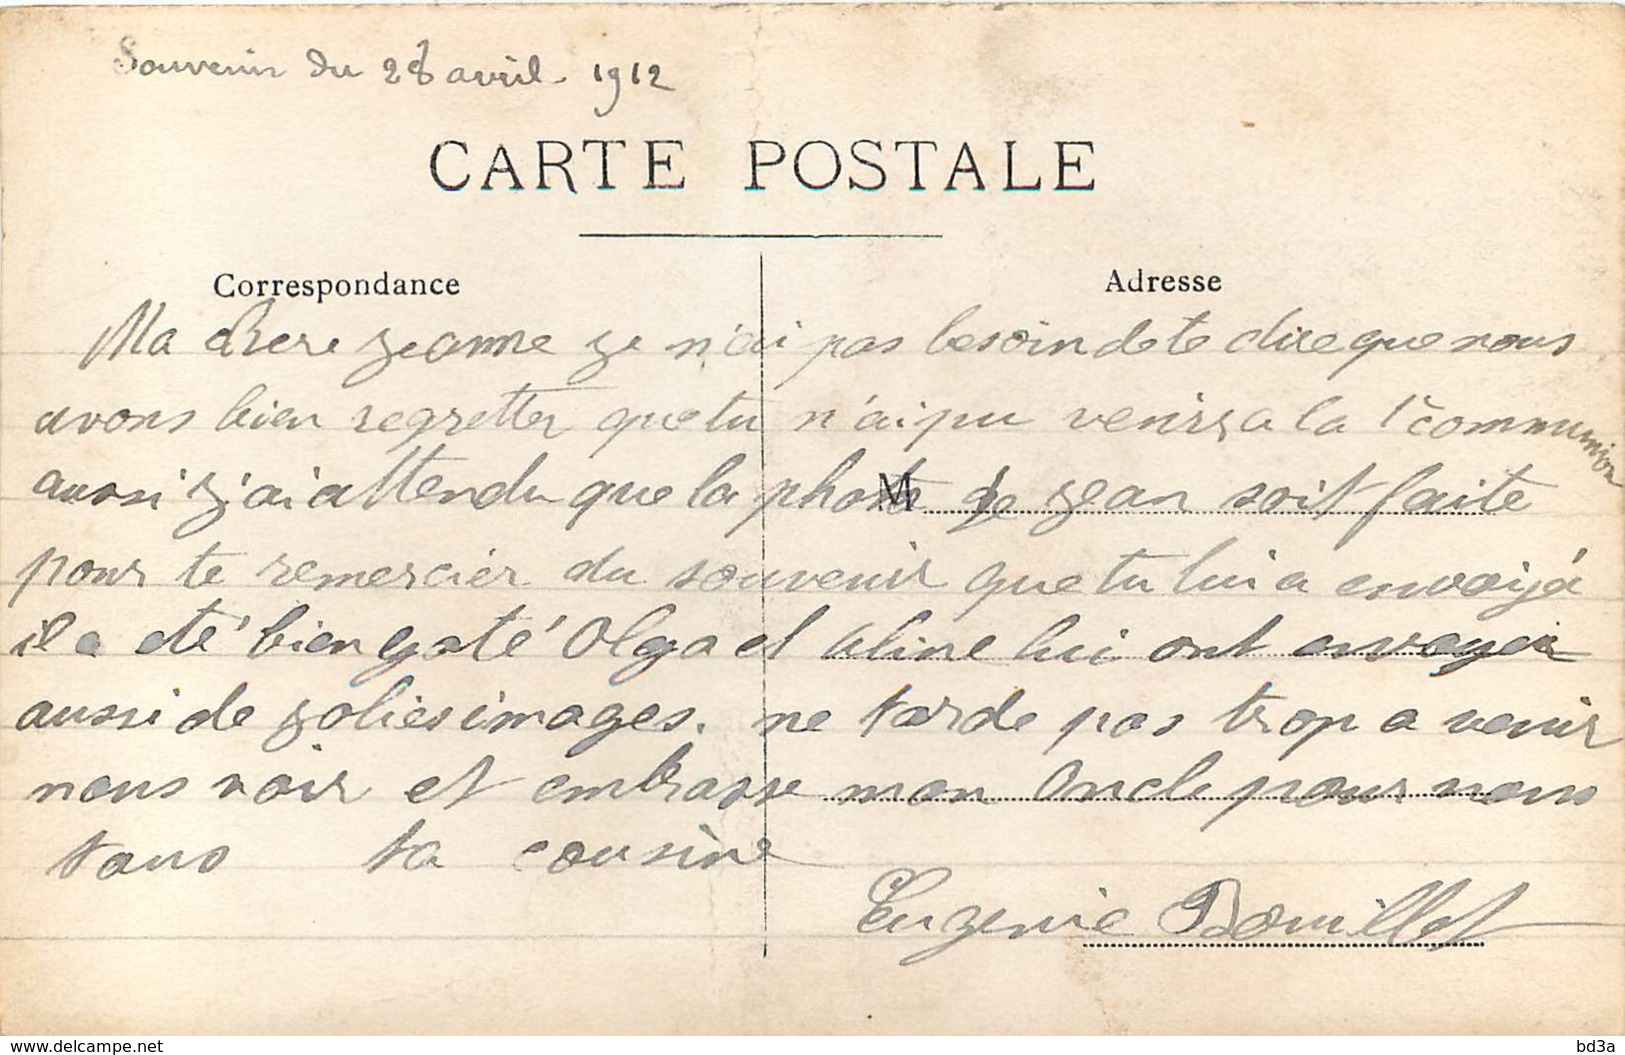 Souvenir du 28 avril 1912
CARTE POSTALE
Correspondance
Adresse
Ma chere jeanne je n'ai pas besoin de te dire que nous
avons bien regretter que tu n'ai pu venir a la 1e communion
aussi j'ai attendu que la photo de jean soit faite
M
pour te remercier du souvenir que tu lui a envoijé
il a eté bien gaté Olga et Aline lui ont envoyer
aussi de jolies images. ne tarde pas trop a venir
nous voir et embrasse mon Oncle pour nous
tous ta cousine
Eugenie Bouillet
www.delcampe.net
bd3a